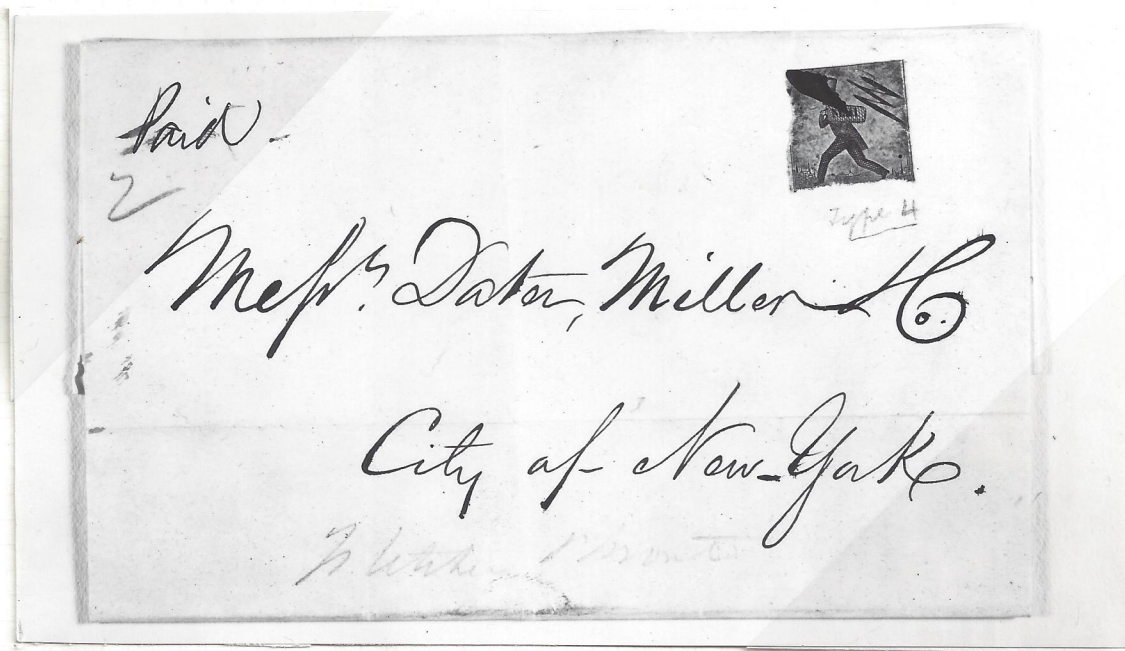 Paid -
2
Type 4
Messrs. Dater, Miller & Co.
City of New-York.